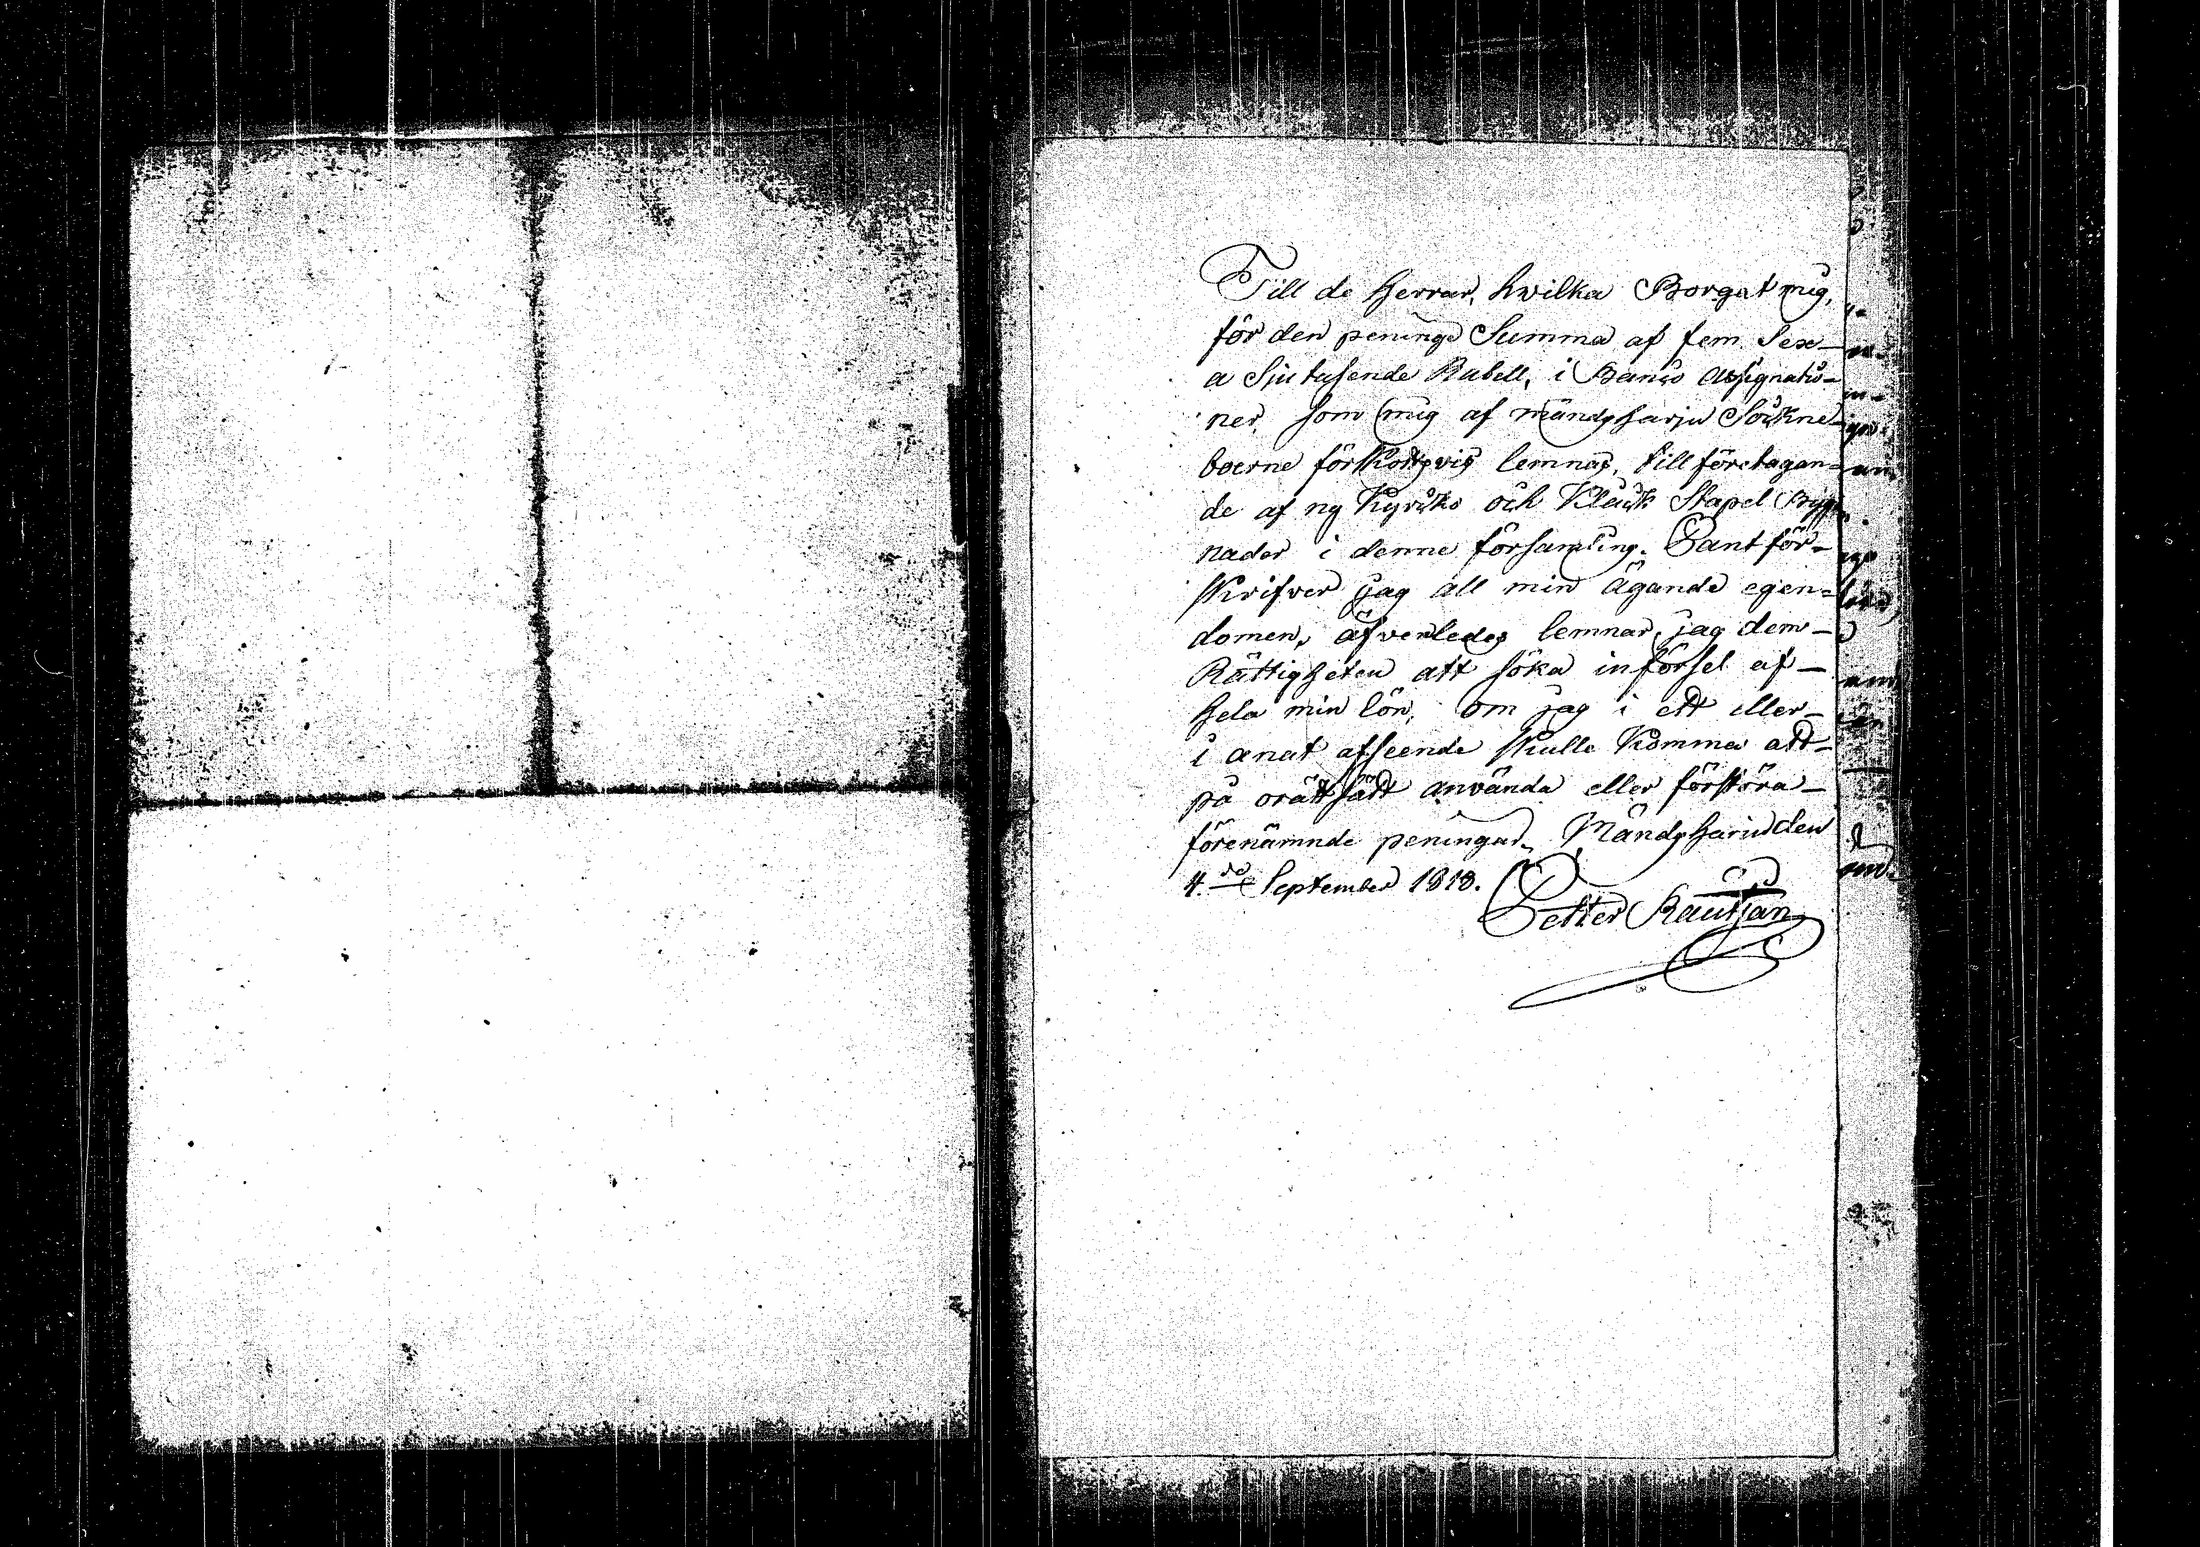 Till de Herrar, hvilka Borgat mig,
för den peninge Summa af fem Sex_
a Sju tusende Rubell, i Banco Assignatio=
ner, som mig af Mändyharju Sockne=
boerne förskottsvis lemnas, till företagan=
de af ny Kyrko och Klock Stapel Bygg
nader i denne församling. Pantför=
skrifver jag all min ägande egen=
domen, äfvenledes lemnar jag dem_
Rättigheten att söka införsel af_
hela min lön, om jag i ett eller_
i anat afseende skulle komma att_
på orätt sätt använda eller förstöra_
förenämnde peningar. Mändyhariu den
4.de September 1818.
Petter Rautjan